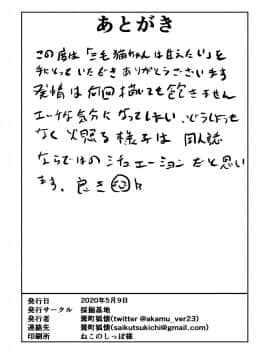 あとがき
この度は「三毛猫ちゃんは甘えたい」を
手にとっていただきありがとうございます
発情は何回描いても飽きません
エッチな気分になってしまい、どうしようも
なく火照る様子は同人誌
ならではのシチュエーションだと思い
ます。良き
発行日 2020年5月9日
発行サークル 採掘基地
発行者 鷺町狐懐(twitter @akamu_ver23)
連絡先 鷺町狐懐(saikutsukichi@gmail.com)
印刷所 ねこのしっぽ様